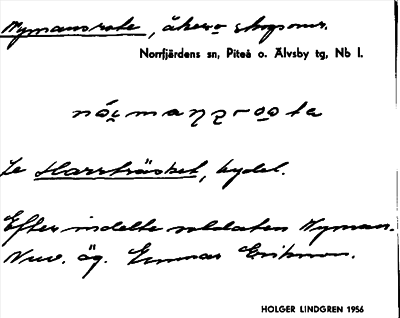 Nymansrote, åker o skogsomr.
Norrfjärdens sn, Piteå o. Älvsby tg, Nb l.
Se Harrträsket, bydel.
Efter indelte soldaten Nyman.
Nuv. äg. Gunnar Eriksson.
HOLGER LINDGREN 1956